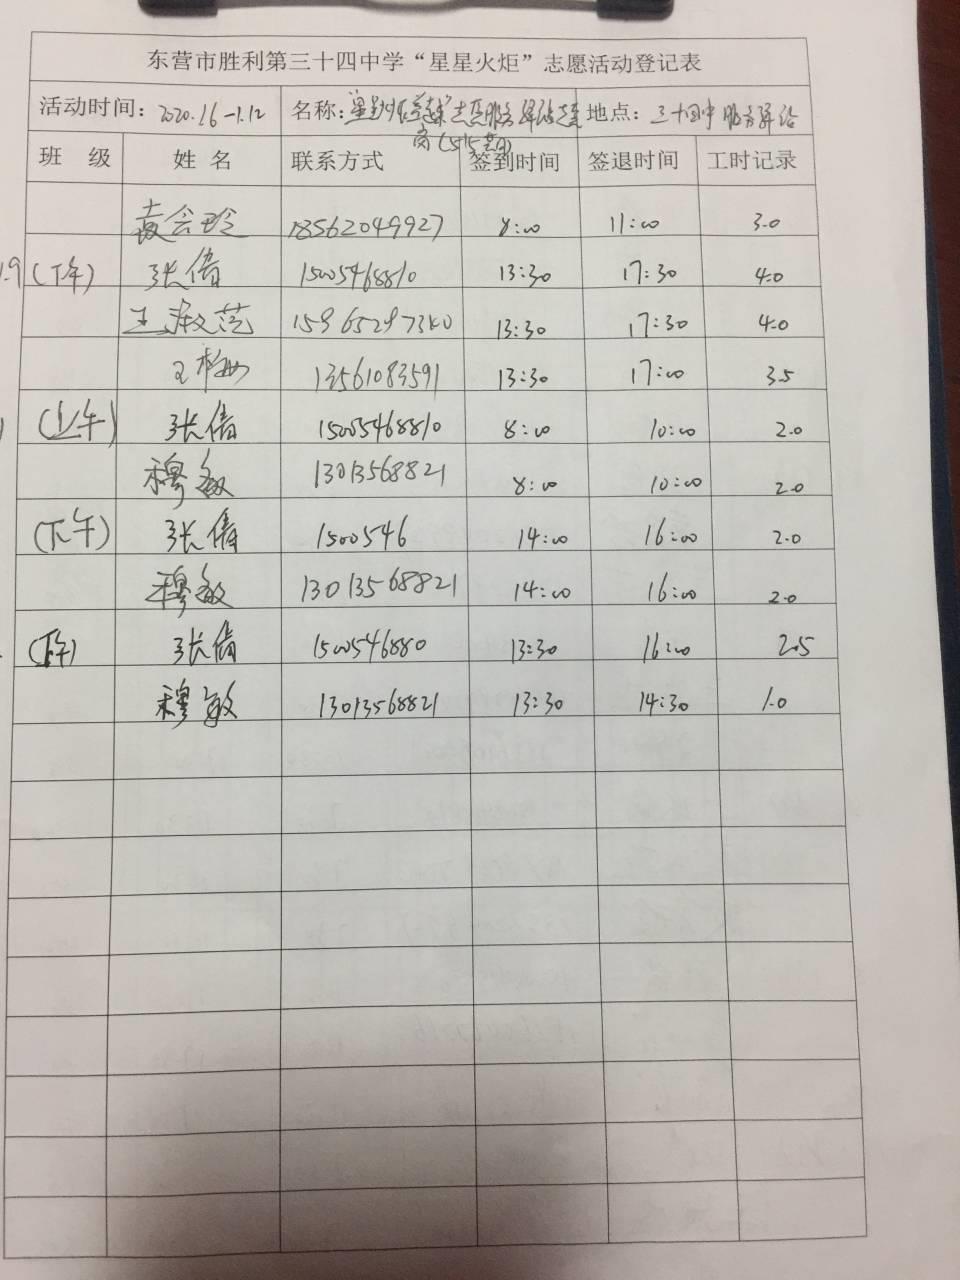 东营市胜利第三十四中学“星星火炬”志愿活动登记表
活动时间：2020.1.6-1.12 名称： 志愿服务驿站 地点：三十四中服务驿站
班 级 姓 名 联系方式 签到时间 签退时间 工时记录
袁会玲 18562049927 8:00 11:00 3.0
1.9 (下午) 张倩 15005468810 13:30 17:30 4.0
王淑范 13:30 17:30 4.0
王 13561083591 13:30 17:00 3.5
(上午) 张倩 15005468810 8:00 10:00 2.0
穆敏 13013568821 8:00 10:00 2.0
(下午) 张倩 1500546 14:00 16:00 2.0
穆敏 13013568821 14:00 16:00 2.0
(下午) 张倩 1500546880 13:30 16:00 2.5
穆敏 13013568821 13:30 14:30 1.0